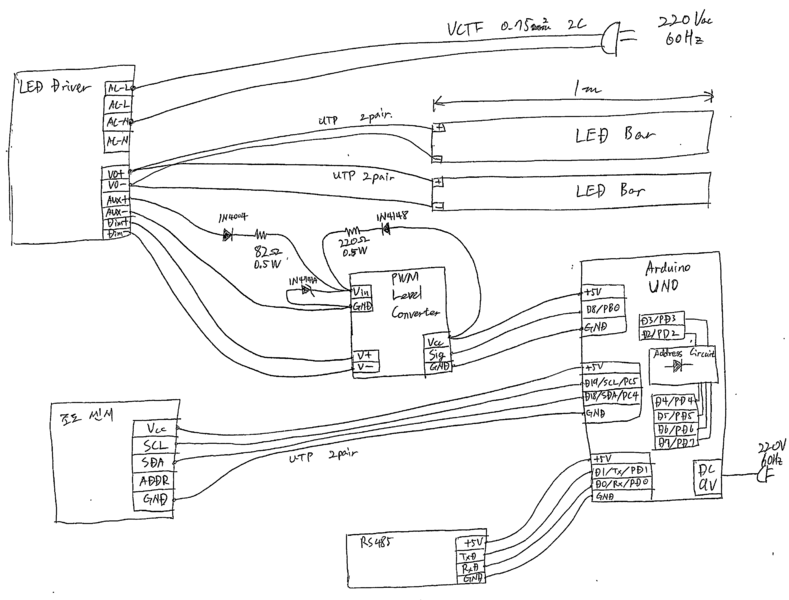 VCTF 0.75mm² 2C
220Vac
60Hz
LED Driver
AC-L
AC-L
AC-N
AC-N
VO+
VO-
AUX+
AUX-
Dim+
Dim-
1m
UTP 2pair.
LED Bar
+
-
UTP 2pair
LED Bar
+
-
1N4004
82Ω
0.5W
220Ω
0.5W
1N4148
PWM
Level
Converter
Vin
GND
V+
V-
Vcc
Sig
GND
Arduino
UNO
+5V
D8/PB0
GND
D3/PD3
D2/PD2
Address Circuit
+5V
D19/SCL/PC5
D18/SDA/PC4
GND
D4/PD4
D5/PD5
D6/PD6
D7/PD7
+5V
D1/Tx/PD1
D0/Rx/PD0
GND
DC
9V
220V
60Hz
조도 센서
Vcc
SCL
SDA
ADDR
GND
UTP 2pair
RS485
+5V
TxD
RxD
GND